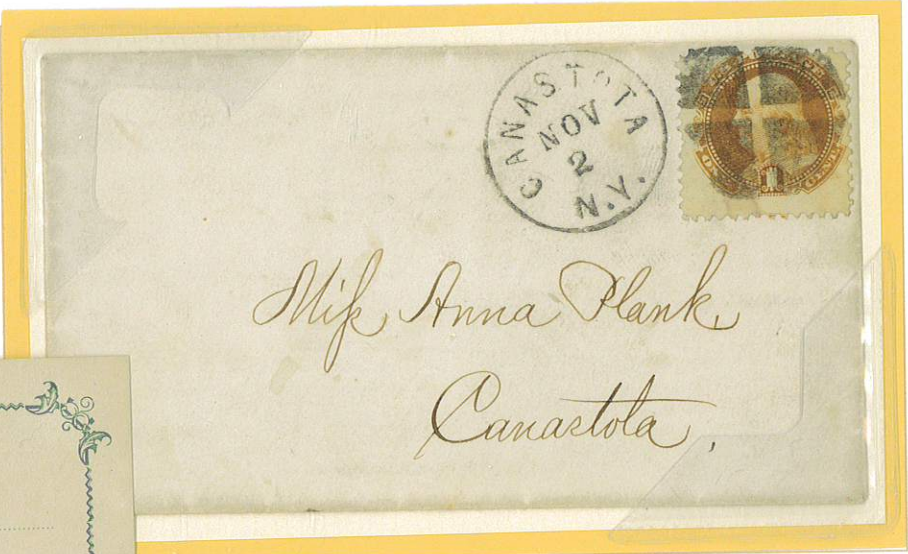 CANASTOTA
NOV
2
N.Y.
1
Miſs Anna Plank
Canastota,